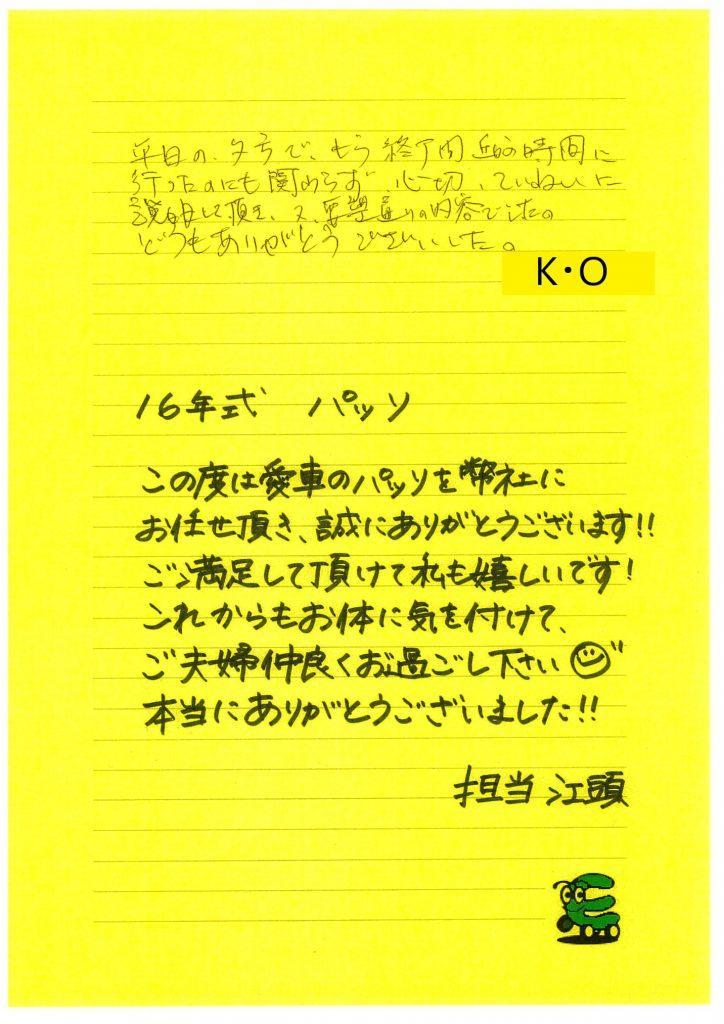 平日の、夕方で、もう終了間近の時間に
行ったのにも関わらず、心切、ていねいに
説明して頂き、又、要望通りの内容でしたの
どうもありがとうございいした。
K・O
16年式 パッソ
この度は愛車のパッソを弊社に
お任せ頂き、誠にありがとうございます!!
ご満足して頂けて私も嬉しいです!
これからもお体に気を付けて、
ご夫婦仲良くお過ごし下さい
本当にありがとうございました!!
担当 江頭